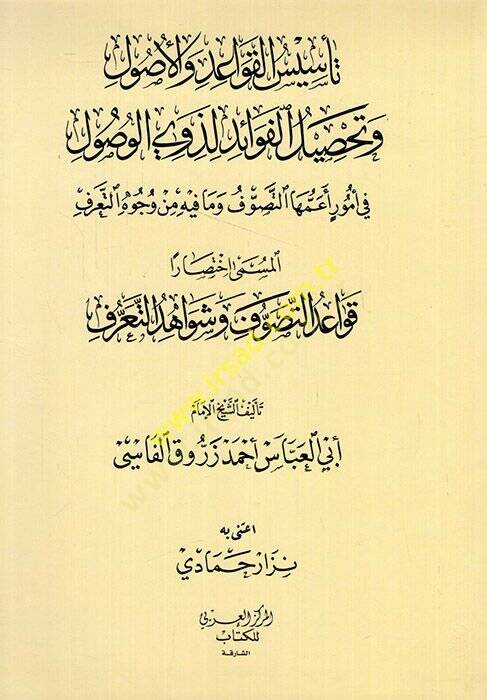 تأسيس القواعد والأصول
وتحصيل الفوائد لذوي الوصول
في أمور أعمها التصوف وما فيه من وجوه التعرف
المسمى اختصارا
قواعد التصوف وشواهد التعرف
تأليف الشيخ الإمام
أبي العباس أحمد زروق الفاسي
اعتنى به
نزار حمادي
المركز العربي
للكتاب
الشارقة
www.irsad.com.tr